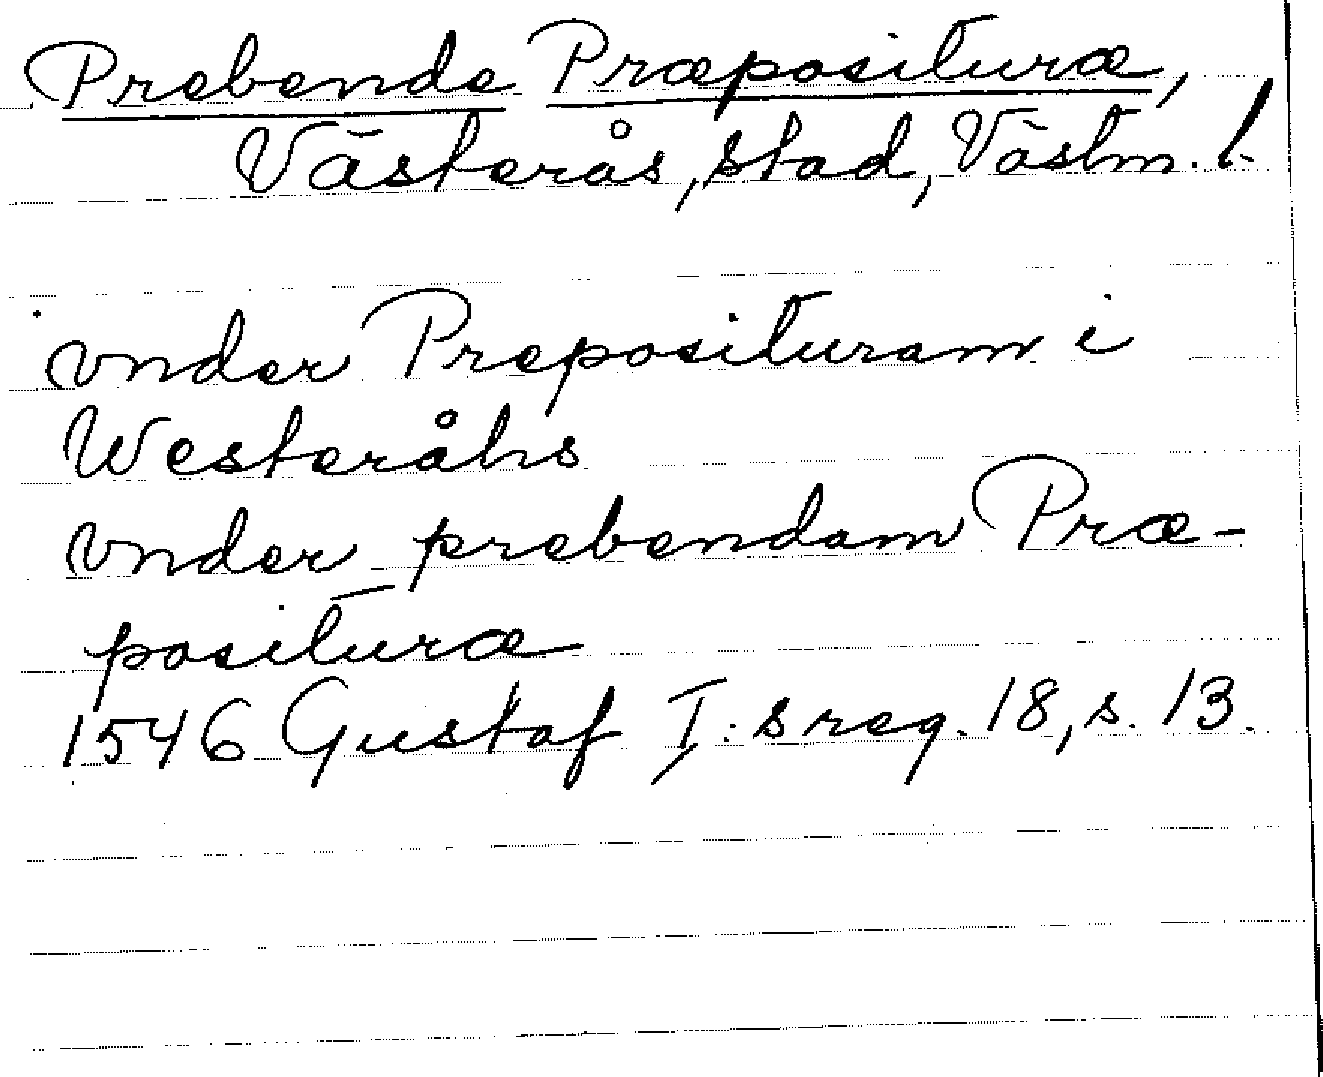 Prebende Præpositura,
Västerås, stad, Västm. l.
vnder Preposituram i
Westeråhs
vnder prebendam Præ-
posituræ
1546 Gustaf I:s reg. 18, s. 13.